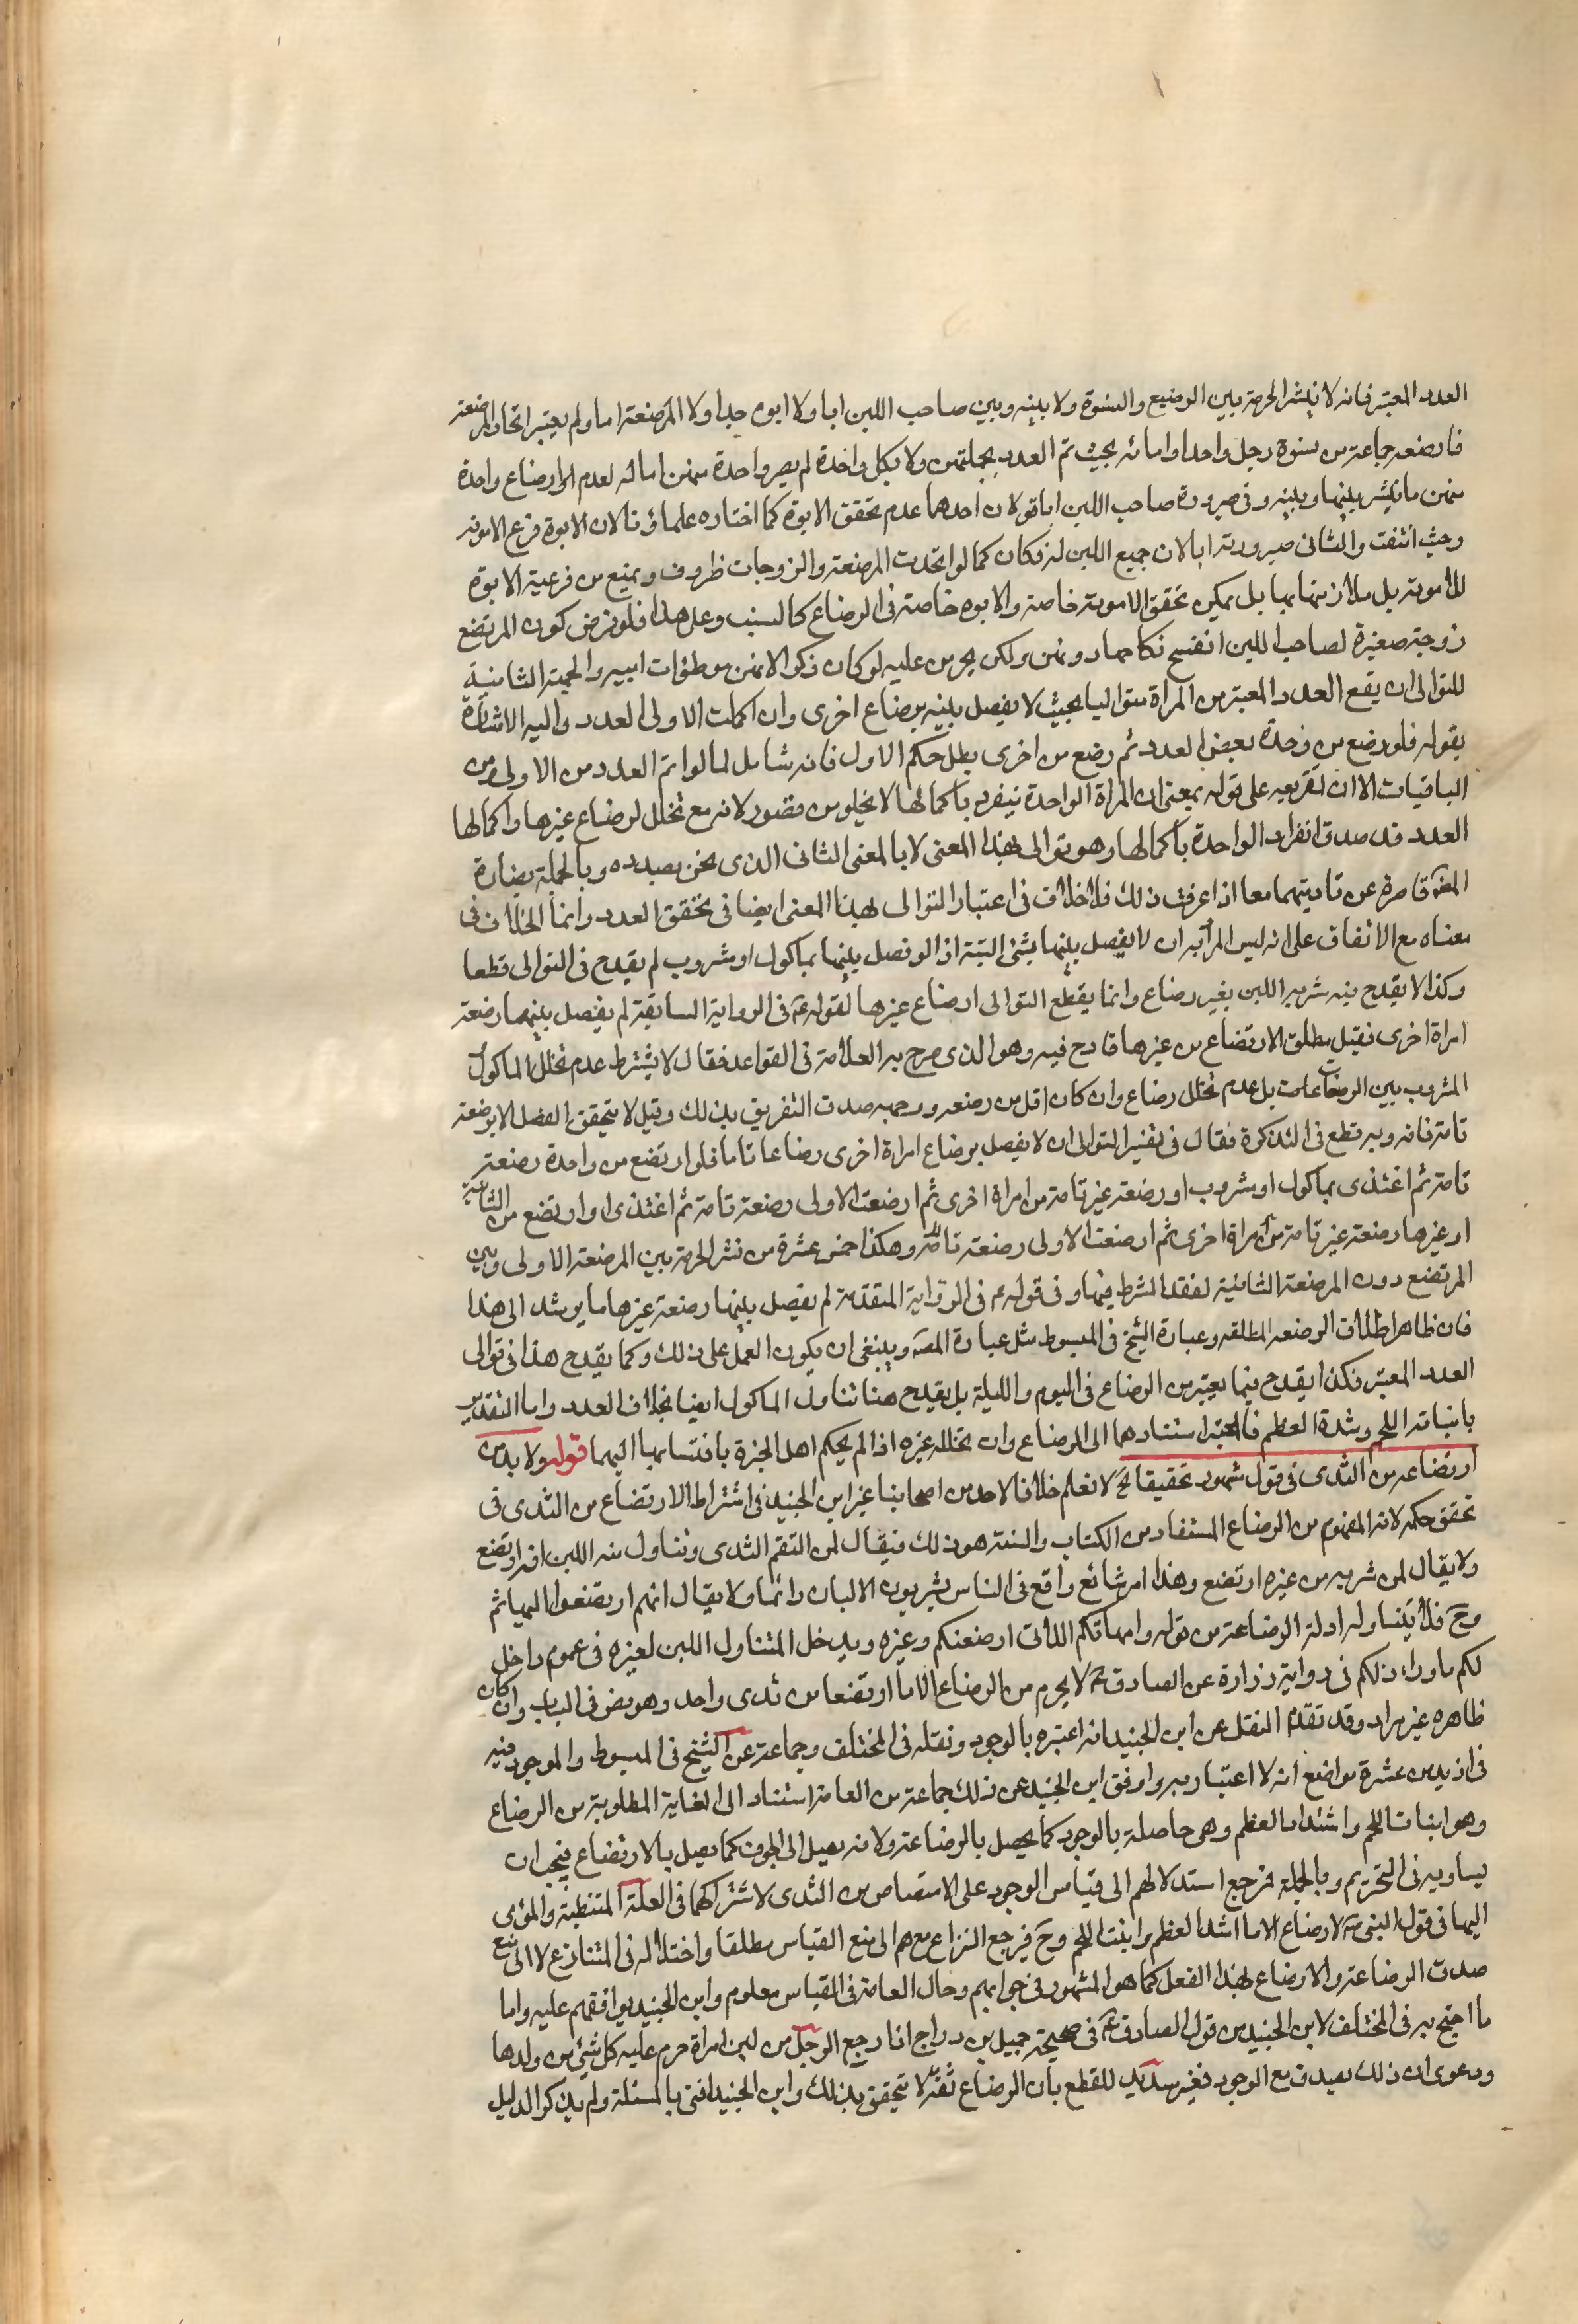 العدد المعتبر فانه لا ينشر الحرمة بين الرضيع والنسوة ولا بينه وبين صاحب اللبن ابا ولا ابوه جدا ولا المرضعة اما ولم يعتبر اتحاد المرضعة
فارضعه جماعة من نسوة رجل واحد او امائه بحيث تم العدد بجملتهن ولا بكل واحدة لم يصر واحدة منهن اما له لعدم ارضاع واحدة
منهن ما ينشر بينها وبينه وفى صيرورة صاحب اللبن ابا قولان احدهما عدم تحقق الابوة كما اختاره علماؤنا لان الابوة فرع الامومة
وحيث انتفت والثانى صيرورته ابا لان جميع اللبن له فكان كما لو اتحدت المرضعة والزوجات ظروف ويمنع من فرعية الابوة
للامومة بل ملازمتها بها بل يمكن تحقق الامومة خاصة والابوه خاصة فى الرضاع كالنسب وعلى هذا فلو فرض كون المرتضع
زوجة صغيرة لصاحب اللبن انفسخ نكاحها دونهن ولكن يحرمن عليه لو كان ذكرا لانهن موطوءات ابيه والحجة الثانية
للتوالى ان يقع العدد المعتبر من المراة متواليا بحيث لا يفصل بينه برضاع اخرى وان اكملت الاولى العدد واليه الاشارة
بقوله فلو رضع من واحدة بعض العدد ثم رضع من اخرى بطل حكم الاول فانه شامل لما لو اتم العدد من الاولى ومن
الباقيات الا ان تفريعه على قوله بمعنى ان المراة الواحدة ينفرد باكمالها لا يخلو من قصور لانه مع تخلل رضاع غيرها واكمالها
العدد قد صدق انفراد الواحدة باكمالها وهو توالى بهذا المعنى لا بالمعنى الثانى الذى نحن بصدده وبالجملة بعبارة
المصنف قاصرة عن تاديتهما معا اذا عرفت ذلك فلا خلاف فى اعتبار التوالى بهذا المعنى ايضا فى تحقق العدد وانما الخلاف فى
معناه مع الاتفاق على انه ليس المراد به ان لا يفصل بينها بشئ البتة اذ لو فصل بينها بماكول او مشروب لم يقدح فى التوالى قطعا
وكذا لا يقدح فيه شربه اللبن بغير رضاع وانما يقطع التوالى ارضاع غيرها لقوله ع فى الرواية السابقة لم يفصل بينهما رضعة
امراة اخرى فقيل مطلق الارتضاع من غيرها قادح فيه وهو الذى صرح به العلامة فى القواعد فقال لا يشترط عدم تخلل الماكول
المشروب بين الرضعات بل عدم تخلل رضاع وان كان اقل من رضعه ووجهه صدق التفريق بذلك وقيل لا يتحقق الفصل الا برضعة
تامة فانه وبه قطع فى التذكرة فقال فى تفسير التوالى ان لا يفصل برضاع امراة اخرى رضاعا تاما فلو ارتضع من واحدة رضعة
تامة ثم اغتذى بماكول او مشروب او رضعة غير تامة من امراة اخرى ثم ارضعت الاولى رضعة تامة ثم اغتذى او ارتضع من الثانية
او غيرها رضعة غير تامة من امراة اخرى ثم ارضعت الاولى رضعة تامة وهكذا خمس عشرة من نشر الحرمة بين المرضعة الاولى وبين
المرتضع دون المرضعة الثانية لفقد الشرط فيها وفى قوله ع فى الرواية المتقدمة لم يفصل بينها رضعة غيرها ما يرشد الى هذا
فان ظاهر اطلاق الرضعه المطلقه وعبارة الشيخ فى المبسوط مثل عبارة المصنف وينبغى ان يكون العمل على ذلك وكما يقدح هذا فى توالى
العدد المعتبر فكذا يقدح فيما يعتبر من الرضاع فى اليوم والليلة بل يقدح هنا تناول الماكول ايضا بخلاف العدد واما التقدير
بانبات اللحم وشدة العظم فالمعتبر استنادهما الى الرضاع وان تخلله غيره اذا لم يحكم اهل الخبرة بانتسابها اليهما قوله ولا بد من
ارتضاعه من الثدى فى قول مشهور تحقيقا الخ لا نعلم خلافا لاحد من اصحابنا غير ابن الجنيد فى اشتراط الارتضاع من الثدى فى
تحقق حكمه لانه المفهوم من الرضاع المستفاد من الكتاب والسنة هو ذلك فيقال لمن التقم الثدى وتناول منه اللبن انه ارتضع
ولا يقال لمن شربه من غيره ارتضع وهذا امر شائع واقع فى الناس يشربون الالبان دائما ولا يقال انهم ارتضعوا البهائم
وح فلا يتناوله ادلة الرضاعة من قوله وامهاتكم اللاتى ارضعنكم وغيره ويدخل المتناول اللبن لغيره فى عموم واحل
لكم ما وراء ذلكم فى رواية زرارة عن الصادق ع لا يحرم من الرضاع الا ما ارتضعا من ثدى واحد وهو نص فى الباب وان كان
ظاهره غير مراد وقد تقدم النقل عن ابن الجنيد انه اعتبره بالوجور ونقله فى المختلف وجماعة عن الشيخ فى المبسوط والموجود فيه
فى ازيد من عشرة مواضع انه لا اعتبار به ووافق ابن الجنيد عن ذلك جماعة من العامة استناد الى الغاية المطلوبة من الرضاع
وهو انبات اللحم واشتداد العظم وهى حاصلة بالوجور كما يحصل بالرضاعة ولانه يصل الى الجوف كما يصل بالارتضاع فيجب ان
يساويه فى التحريم وبالجملة فرجع استدلالهم الى قياس الوجور على الامتصاص من الثدى لاشتراكهما فى العلة المتنبطة والمؤمى
اليها فى قول النبى ص لا رضاع الا ما اشد العظم وانبت اللحم وح فيرجع النزاع معهم الى منع القياس مطلقا واختلاله فى المتنازع لا الى منع
صدق الرضاعة والارضاع بهذا الفعل كما هو المشهور فى جوابهم وحال العامة فى القياس معلوم وابن الجنيد يوافقهم عليه واما
ما احتج به فى المختلف لابن الجنيد من قول الصادق ع فى صحيحة جميل بن دراج اذا رضع الرجل من لبن امراة حرم عليه كل شئ من ولدها
ودعوى ان ذلك يصدق مع الوجور فغير سديد للقطع بان الرضاع لا يتحقق بذلك وابن الجنيد افتى بالمسئلة ولم يذكر الدليل